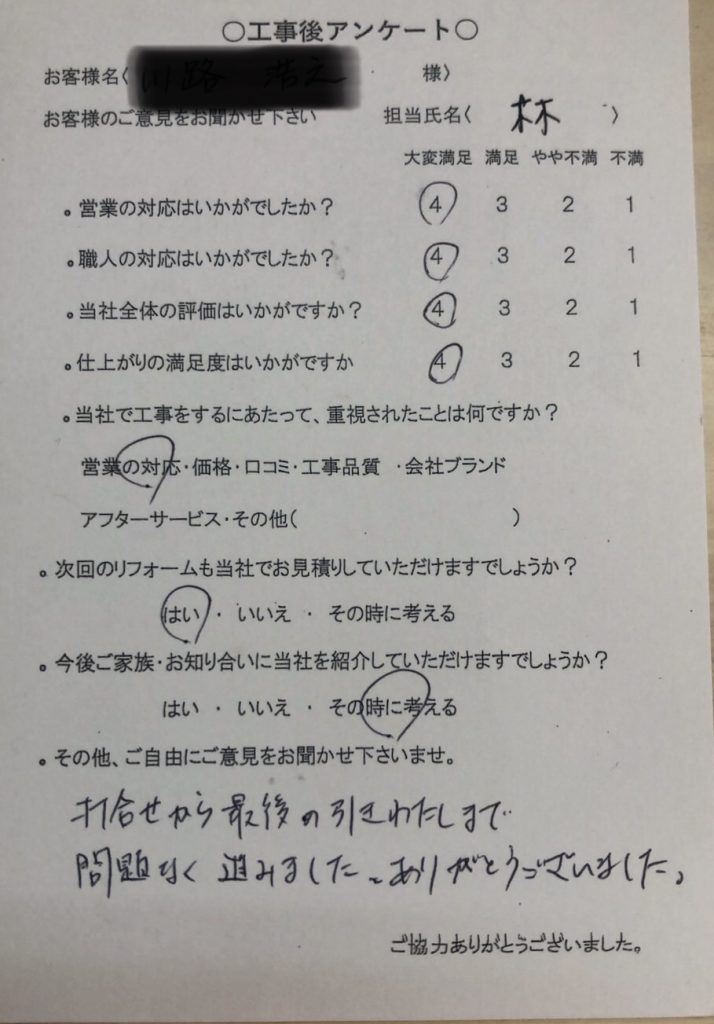 〇工事後アンケート〇
お客様名( 様)
お客様のご意見をお聞かせ下さい 担当氏名( 林 )
大変満足 満足 やや不満 不満
。営業の対応はいかがでしたか? 4 3 2 1
。職人の対応はいかがでしたか? 4 3 2 1
。当社全体の評価はいかがですか? 4 3 2 1
。仕上がりの満足度はいかがですか 4 3 2 1
。当社で工事をするにあたって、重視されたことは何ですか?
営業の対応・価格・口コミ・工事品質 ・会社ブランド
アフターサービス・その他( )
。次回のリフォームも当社でお見積りしていただけますでしょうか?
はい ・ いいえ ・ その時に考える
。今後ご家族・お知り合いに当社を紹介していただけますでしょうか?
はい ・ いいえ ・ その時に考える
。その他、ご自由にご意見をお聞かせ下さいませ。
打合せから最後の引きわたしまで
問題なく進みました。ありがとうございました。
ご協力ありがとうございました。